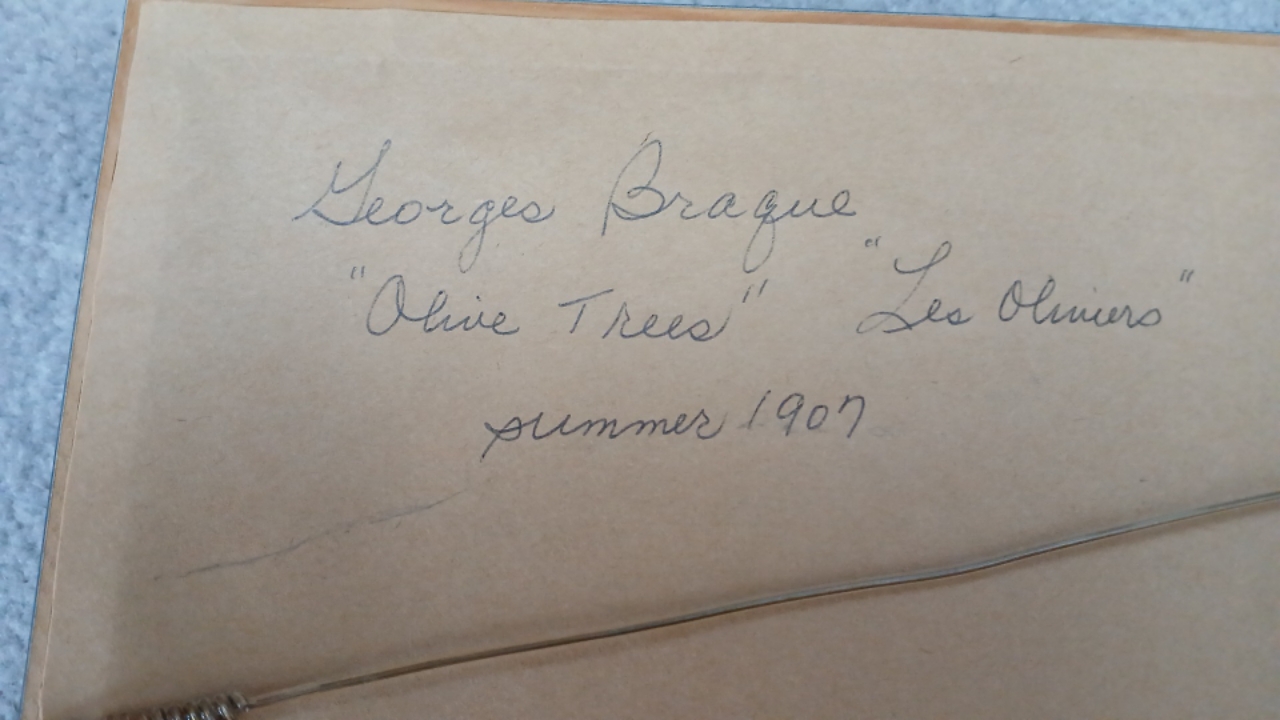 Georges Braque
"Olive Trees" "Les Oliviers"
summer 1907